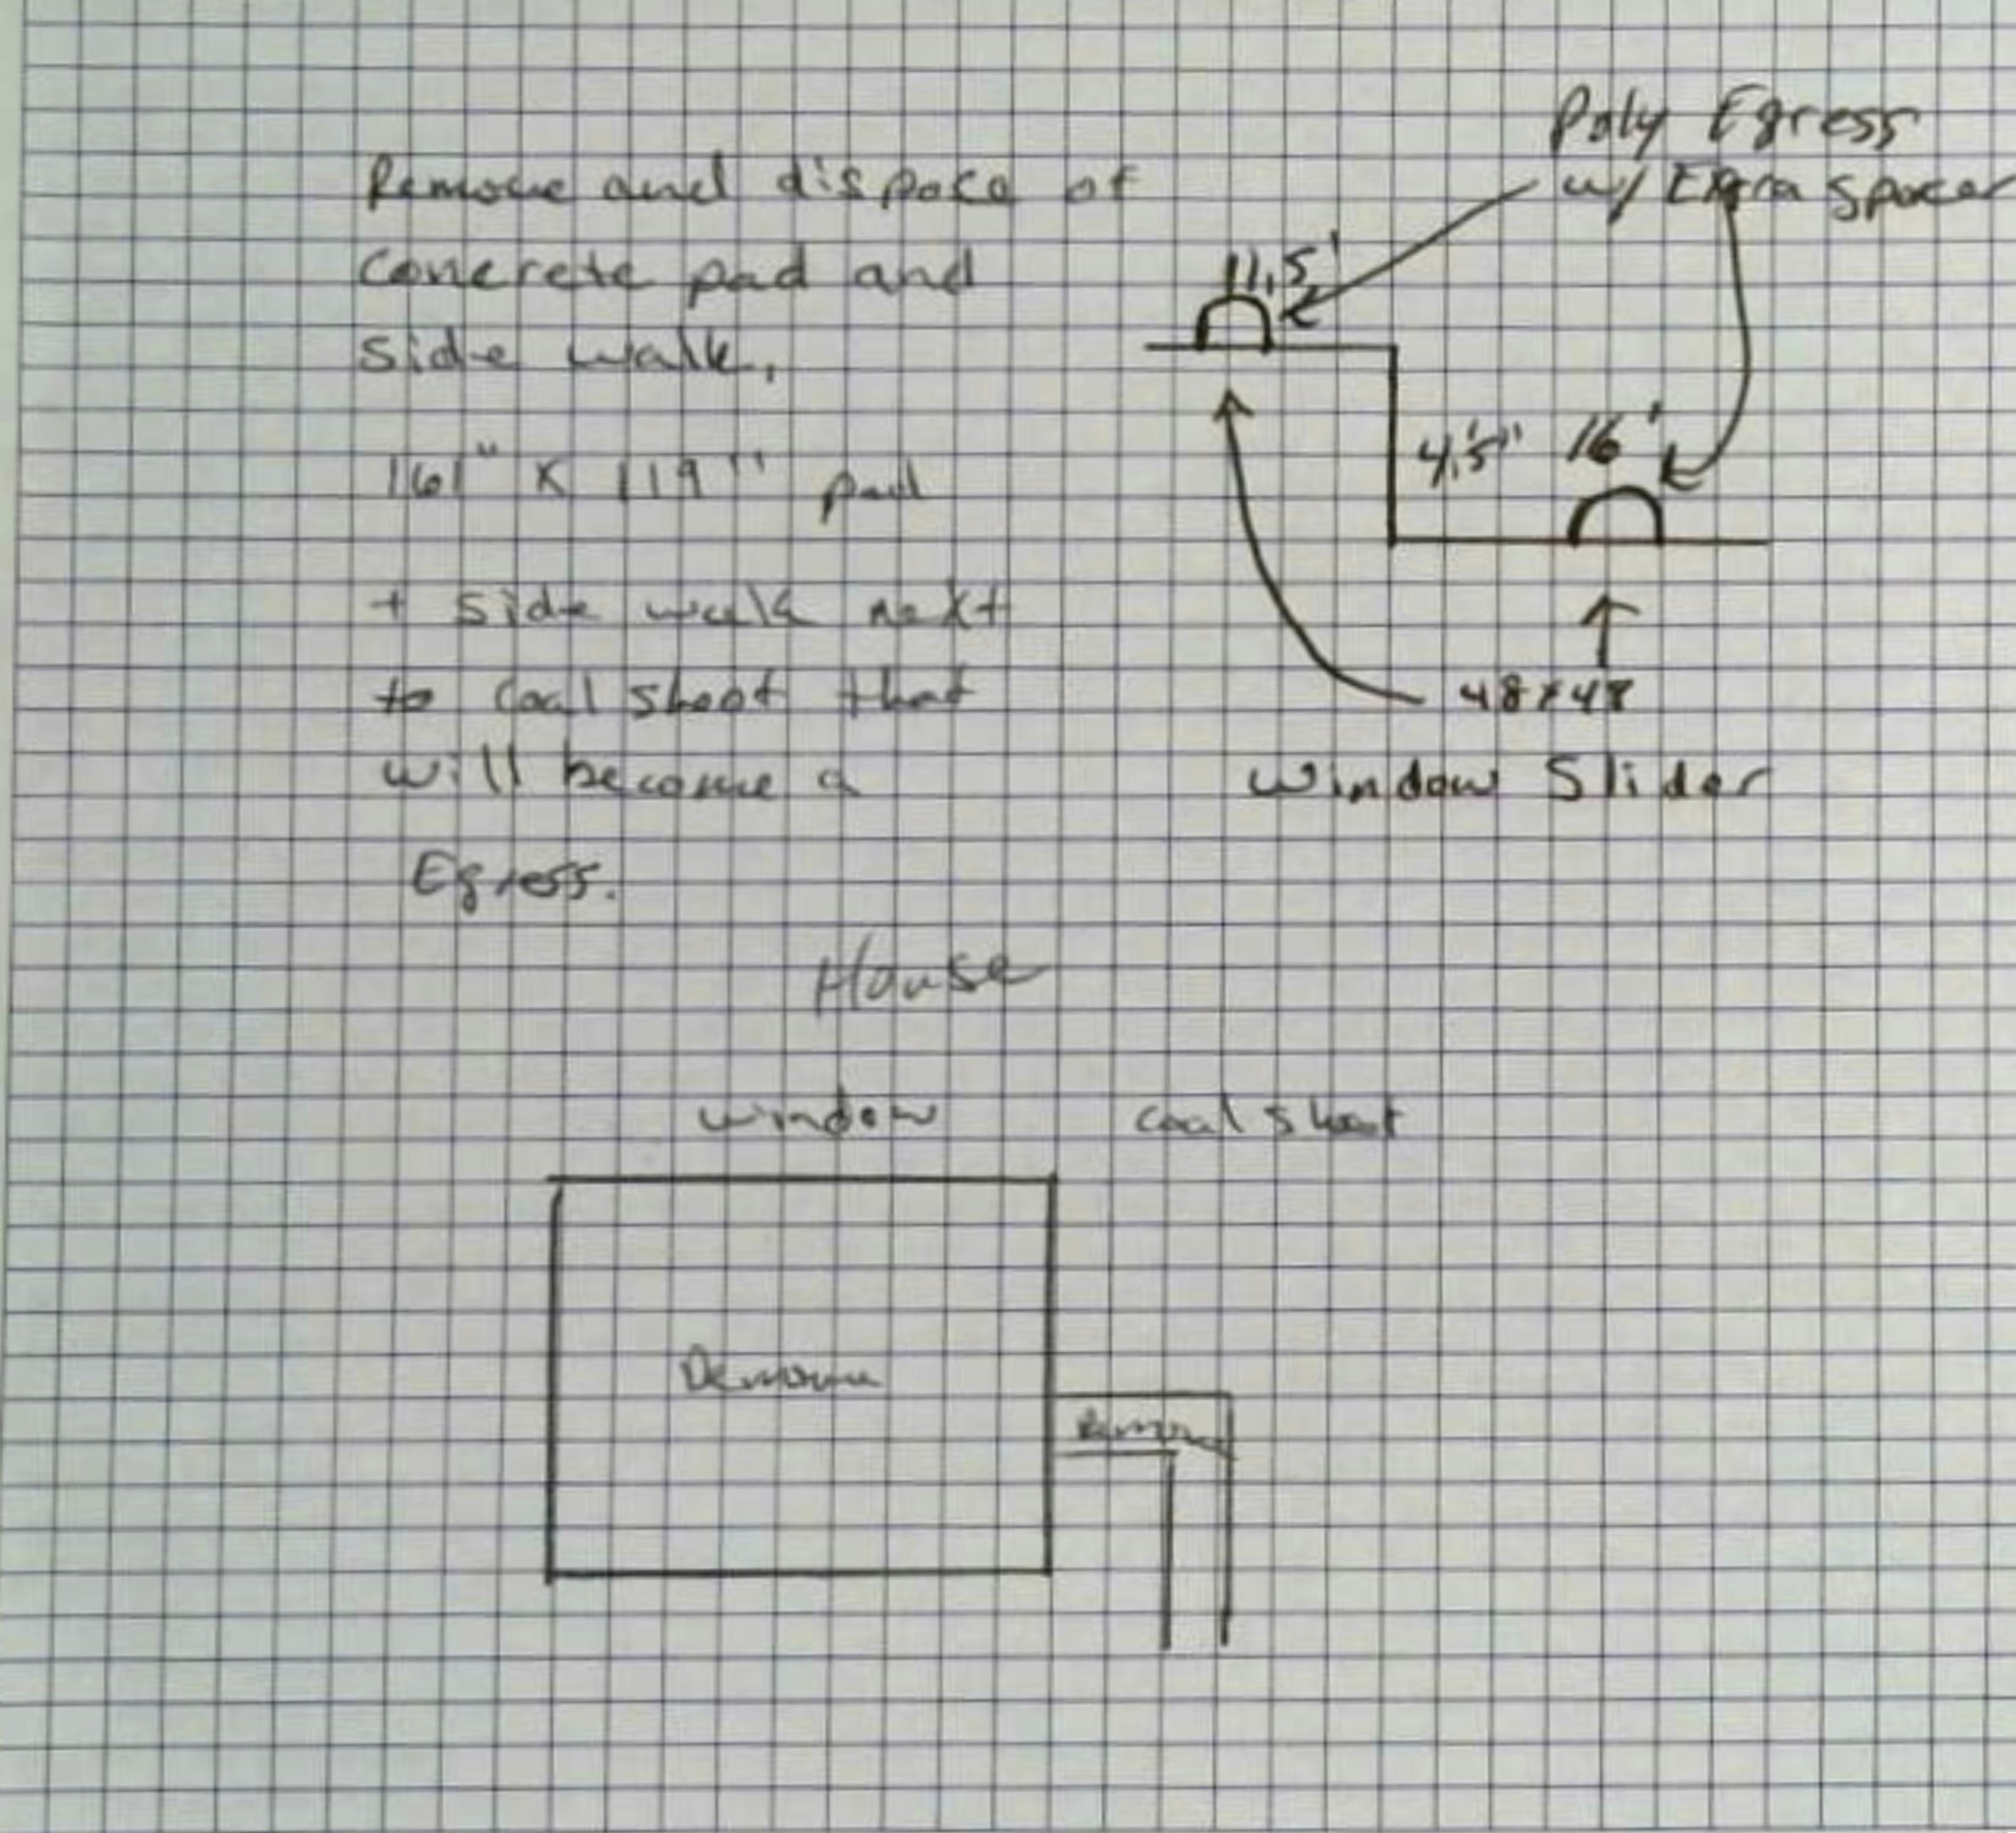 Remove and dispose of
Concrete pad and
side walk.
161" x 119" pad
+ side walk next
to coal shoot that
will become a
Egress.
Poly Egress
w/ Extra Spacer
11.5'
16'
48x48
Window Slider
House
window
coal shoot
Remove